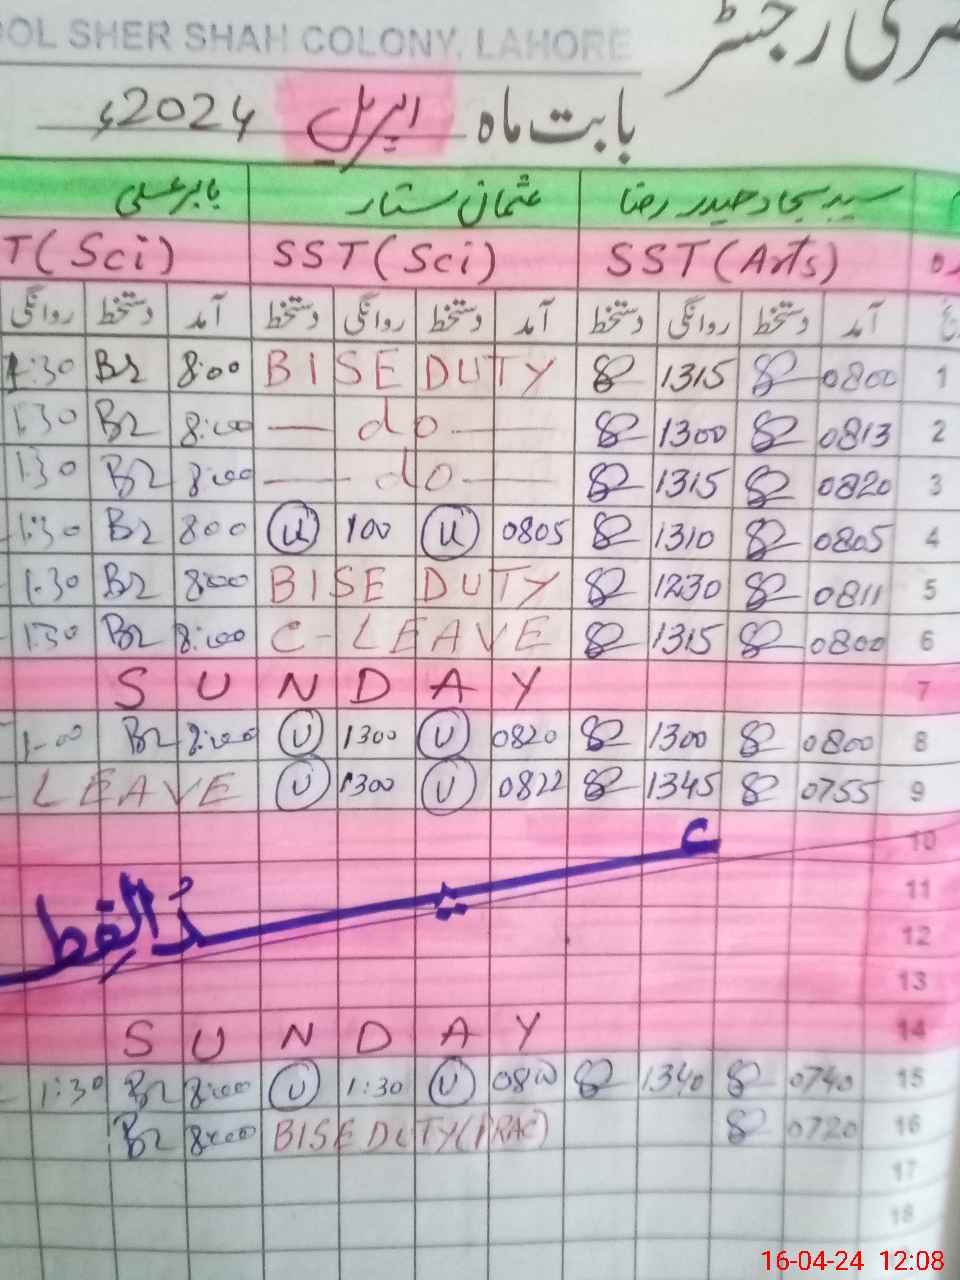 OOL SHER SHAH COLONY, LAHORE
حاضری رجسٹر
بابت ماہ اپریل 2024ء
سید سجاد حیدر رضا عثمان ستار بابر علی
T(Sci) SST(Sci) SST(Arts)
روانگی دستخط آمد دستخط روانگی دستخط آمد دستخط روانگی دستخط آمد
1:30 Br 8:00 BISE DUTY 1315 0800 1
1:30 Br 8:00 — do — 1300 0813 2
1:30 Br 8:00 — do — 1315 0820 3
1:30 Br 800 U 100 U 0805 1310 0805 4
1:30 Br 8:00 BISE DUTY 1230 0811 5
1:30 Br 8:00 C-LEAVE 1315 0800 6
SUNDAY 7
1-00 Br 8:00 U 1300 U 0820 1300 0800 8
LEAVE U 1300 U 0822 1345 0755 9
10
عید الفطر
11
12
13
SUNDAY 14
1:30 Br 8:00 U 1:30 U 1340 0740 15
Br 8:00 BISE DUTY (PRAC) 0720 16
17
18
16-04-24 12:08